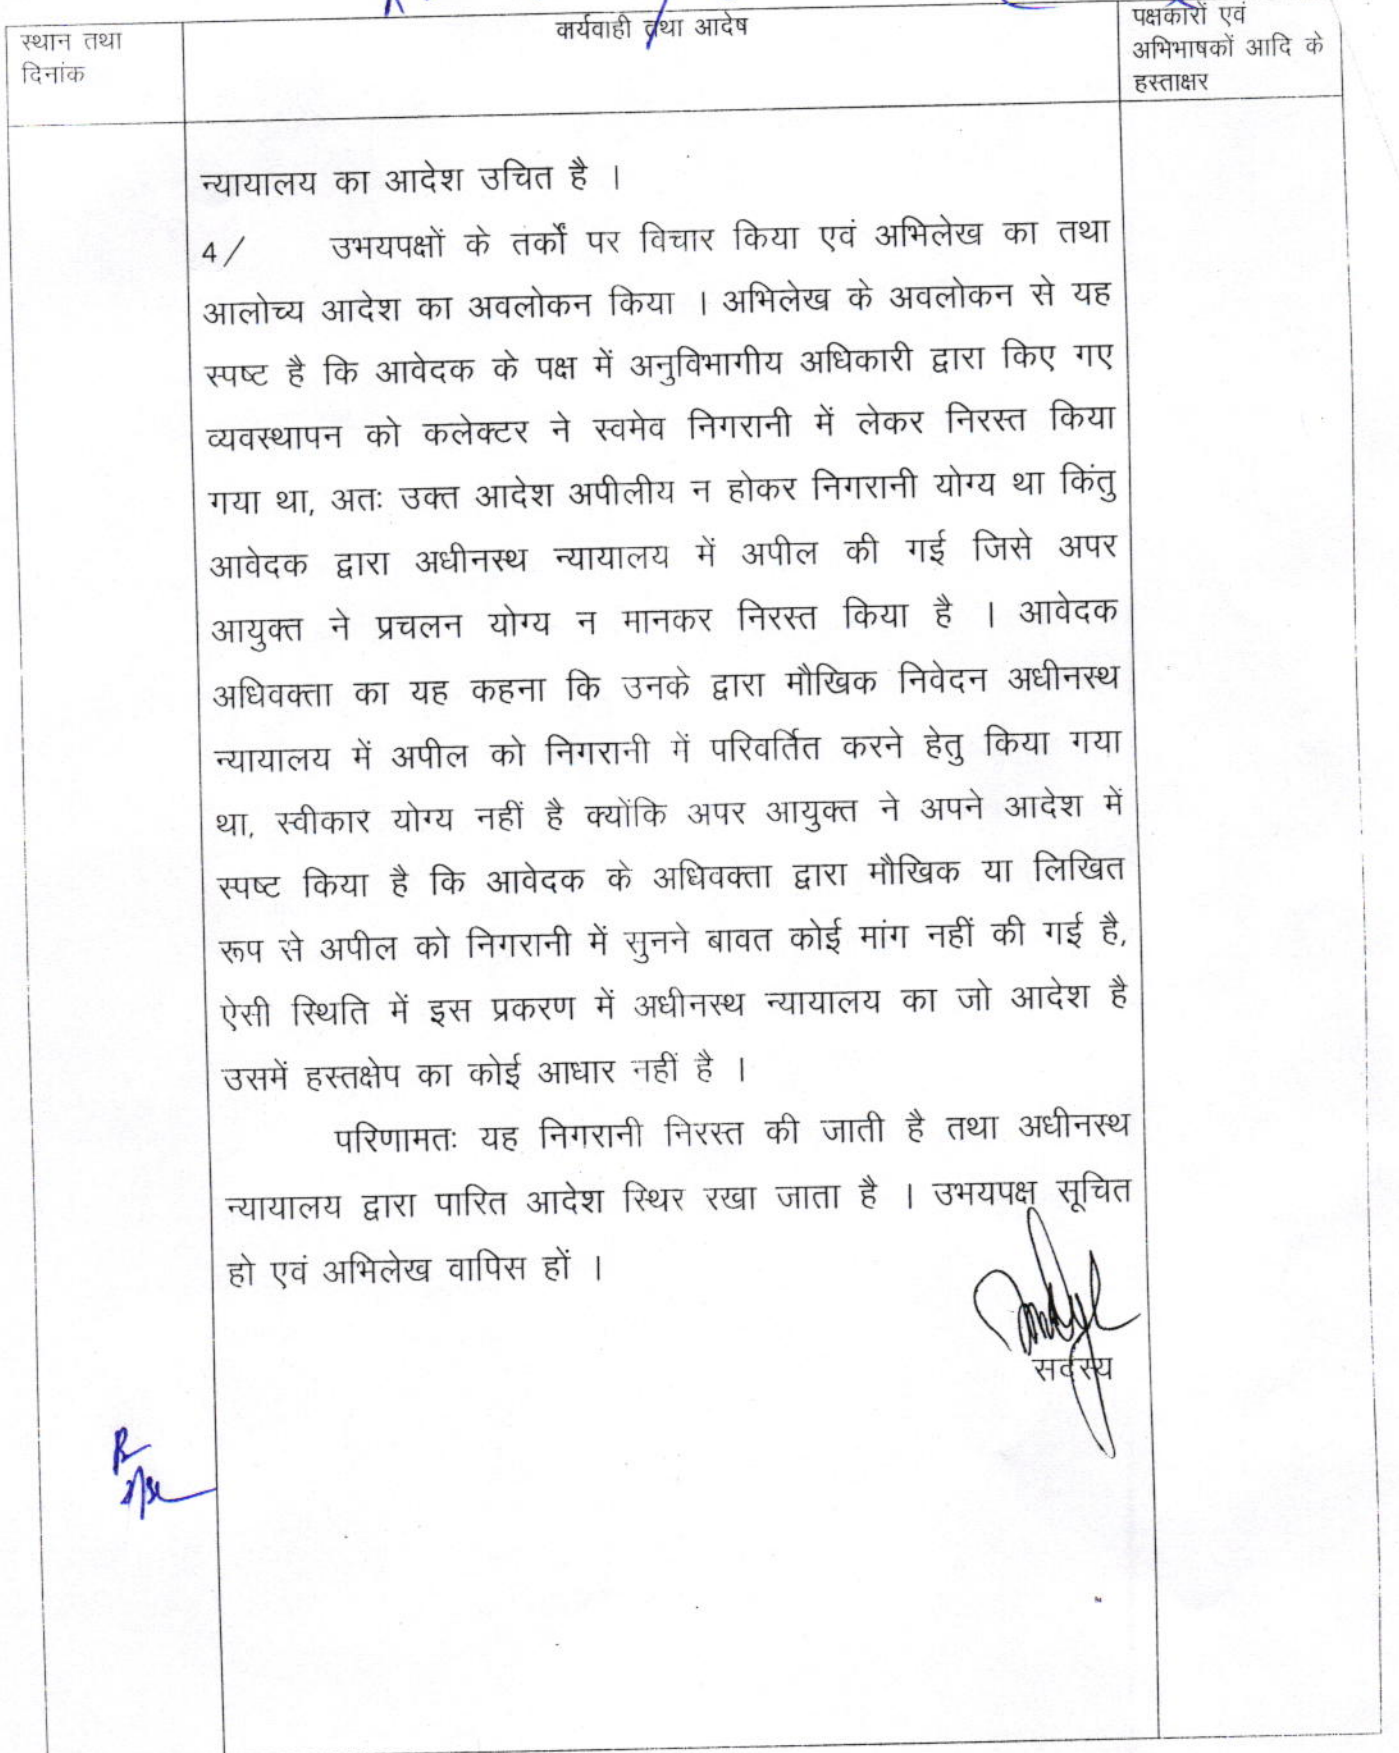 स्थान तथा
दिनांक
कार्यवाही तथा आदेष
पक्षकारों एवं
अभिभाषकों आदि के
हस्ताक्षर
न्यायालय का आदेश उचित है ।
4/ उभयपक्षों के तर्कों पर विचार किया एवं अभिलेख का तथा
आलोच्य आदेश का अवलोकन किया । अभिलेख के अवलोकन से यह
स्पष्ट है कि आवेदक के पक्ष में अनुविभागीय अधिकारी द्वारा किए गए
व्यवस्थापन को कलेक्टर ने स्वमेव निगरानी में लेकर निरस्त किया
गया था, अतः उक्त आदेश अपीलीय न होकर निगरानी योग्य था किंतु
आवेदक द्वारा अधीनस्थ न्यायालय में अपील की गई जिसे अपर
आयुक्त ने प्रचलन योग्य न मानकर निरस्त किया है । आवेदक
अधिवक्ता का यह कहना कि उनके द्वारा मौखिक निवेदन अधीनस्थ
न्यायालय में अपील को निगरानी में परिवर्तित करने हेतु किया गया
था, स्वीकार योग्य नहीं है क्योंकि अपर आयुक्त ने अपने आदेश में
स्पष्ट किया है कि आवेदक के अधिवक्ता द्वारा मौखिक या लिखित
रूप से अपील को निगरानी में सुनने बावत कोई मांग नहीं की गई है,
ऐसी स्थिति में इस प्रकरण में अधीनस्थ न्यायालय का जो आदेश है
उसमें हस्तक्षेप का कोई आधार नहीं है ।
परिणामतः यह निगरानी निरस्त की जाती है तथा अधीनस्थ
न्यायालय द्वारा पारित आदेश स्थिर रखा जाता है । उभयपक्ष सूचित
हो एवं अभिलेख वापिस हों ।
सदस्य